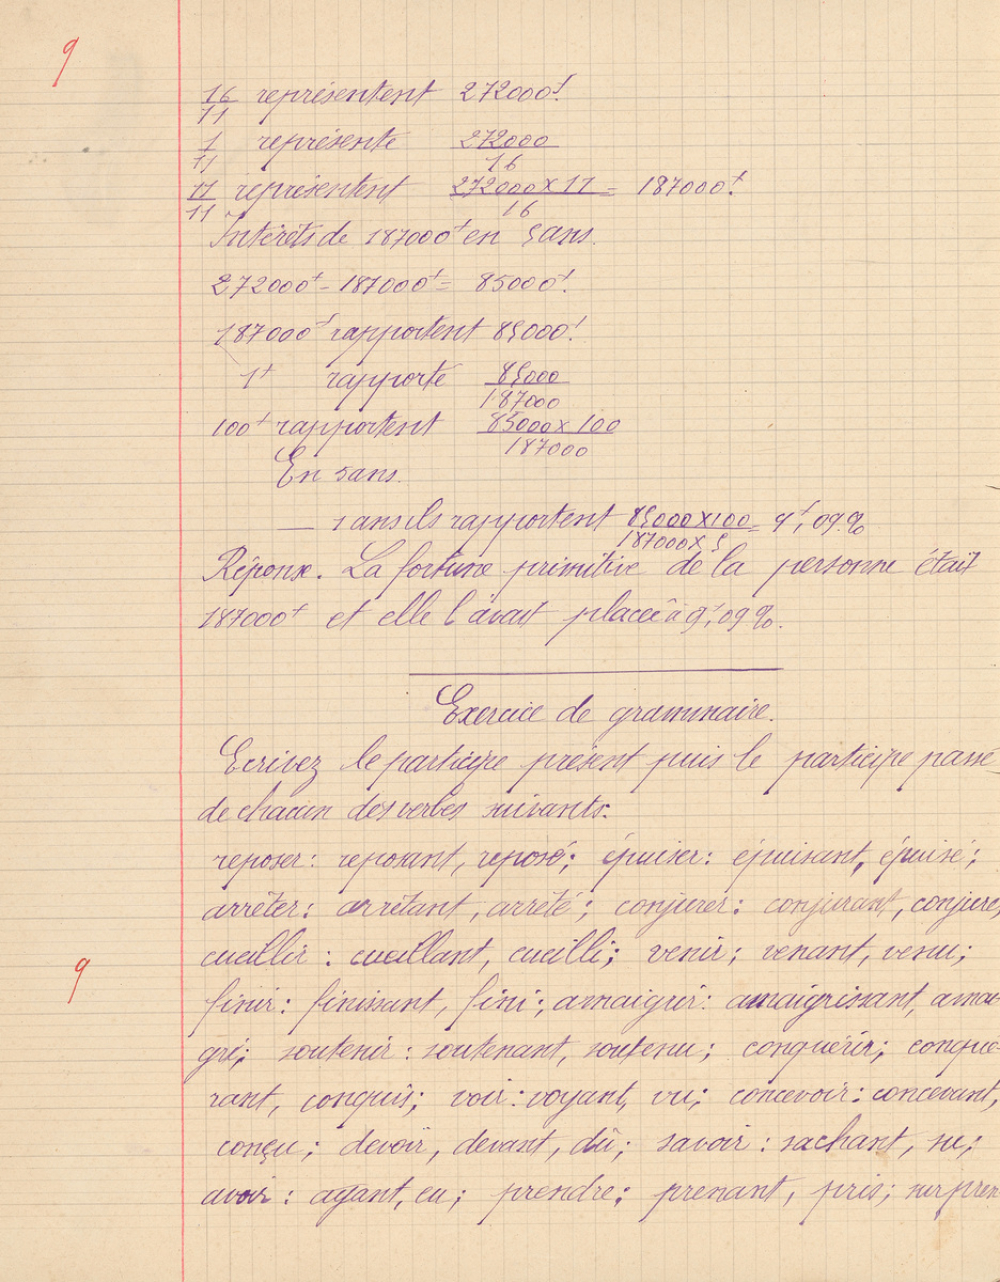 9
16/11 représentent 272000f.
1/11 représente 272000/16
11/11 représentent 272000 x 11/16 = 187000f.
Intérêts de 187000f en 5 ans.
272000f - 187000f = 85000f.
187000f rapportent 85000f.
1f rapporte 85000/187000
100f rapportent 85000 x 100/187000
En 5 ans.
— 1 an ils rapportent 85000 x 100/187000 x 5 = 9f,09 %
Réponse. La fortune primitive de la personne était
187000f et elle l'avait placée à 9f,09 %.
Exercice de grammaire.
Ecrivez le participe présent puis le participe passé
de chacun des verbes suivants:
reposer: reposant, reposé; épuiser: épuisant, épuisé;
arrêter: arrêtant, arrêté; conjurer: conjurant, conjuré,
cueillir: cueillant, cueilli; venir; venant, venu;
9
finir: finissant, fini; amaigrir: amaigrissant, amai-
gri; soutenir: soutenant, soutenu; conquérir; conqué-
rant, conquis; voir: voyant, vu; concevoir: concevant,
conçu; devoir, devant, dû; savoir: sachant, su;
avoir: ayant, eu; prendre; prenant, pris; surpren